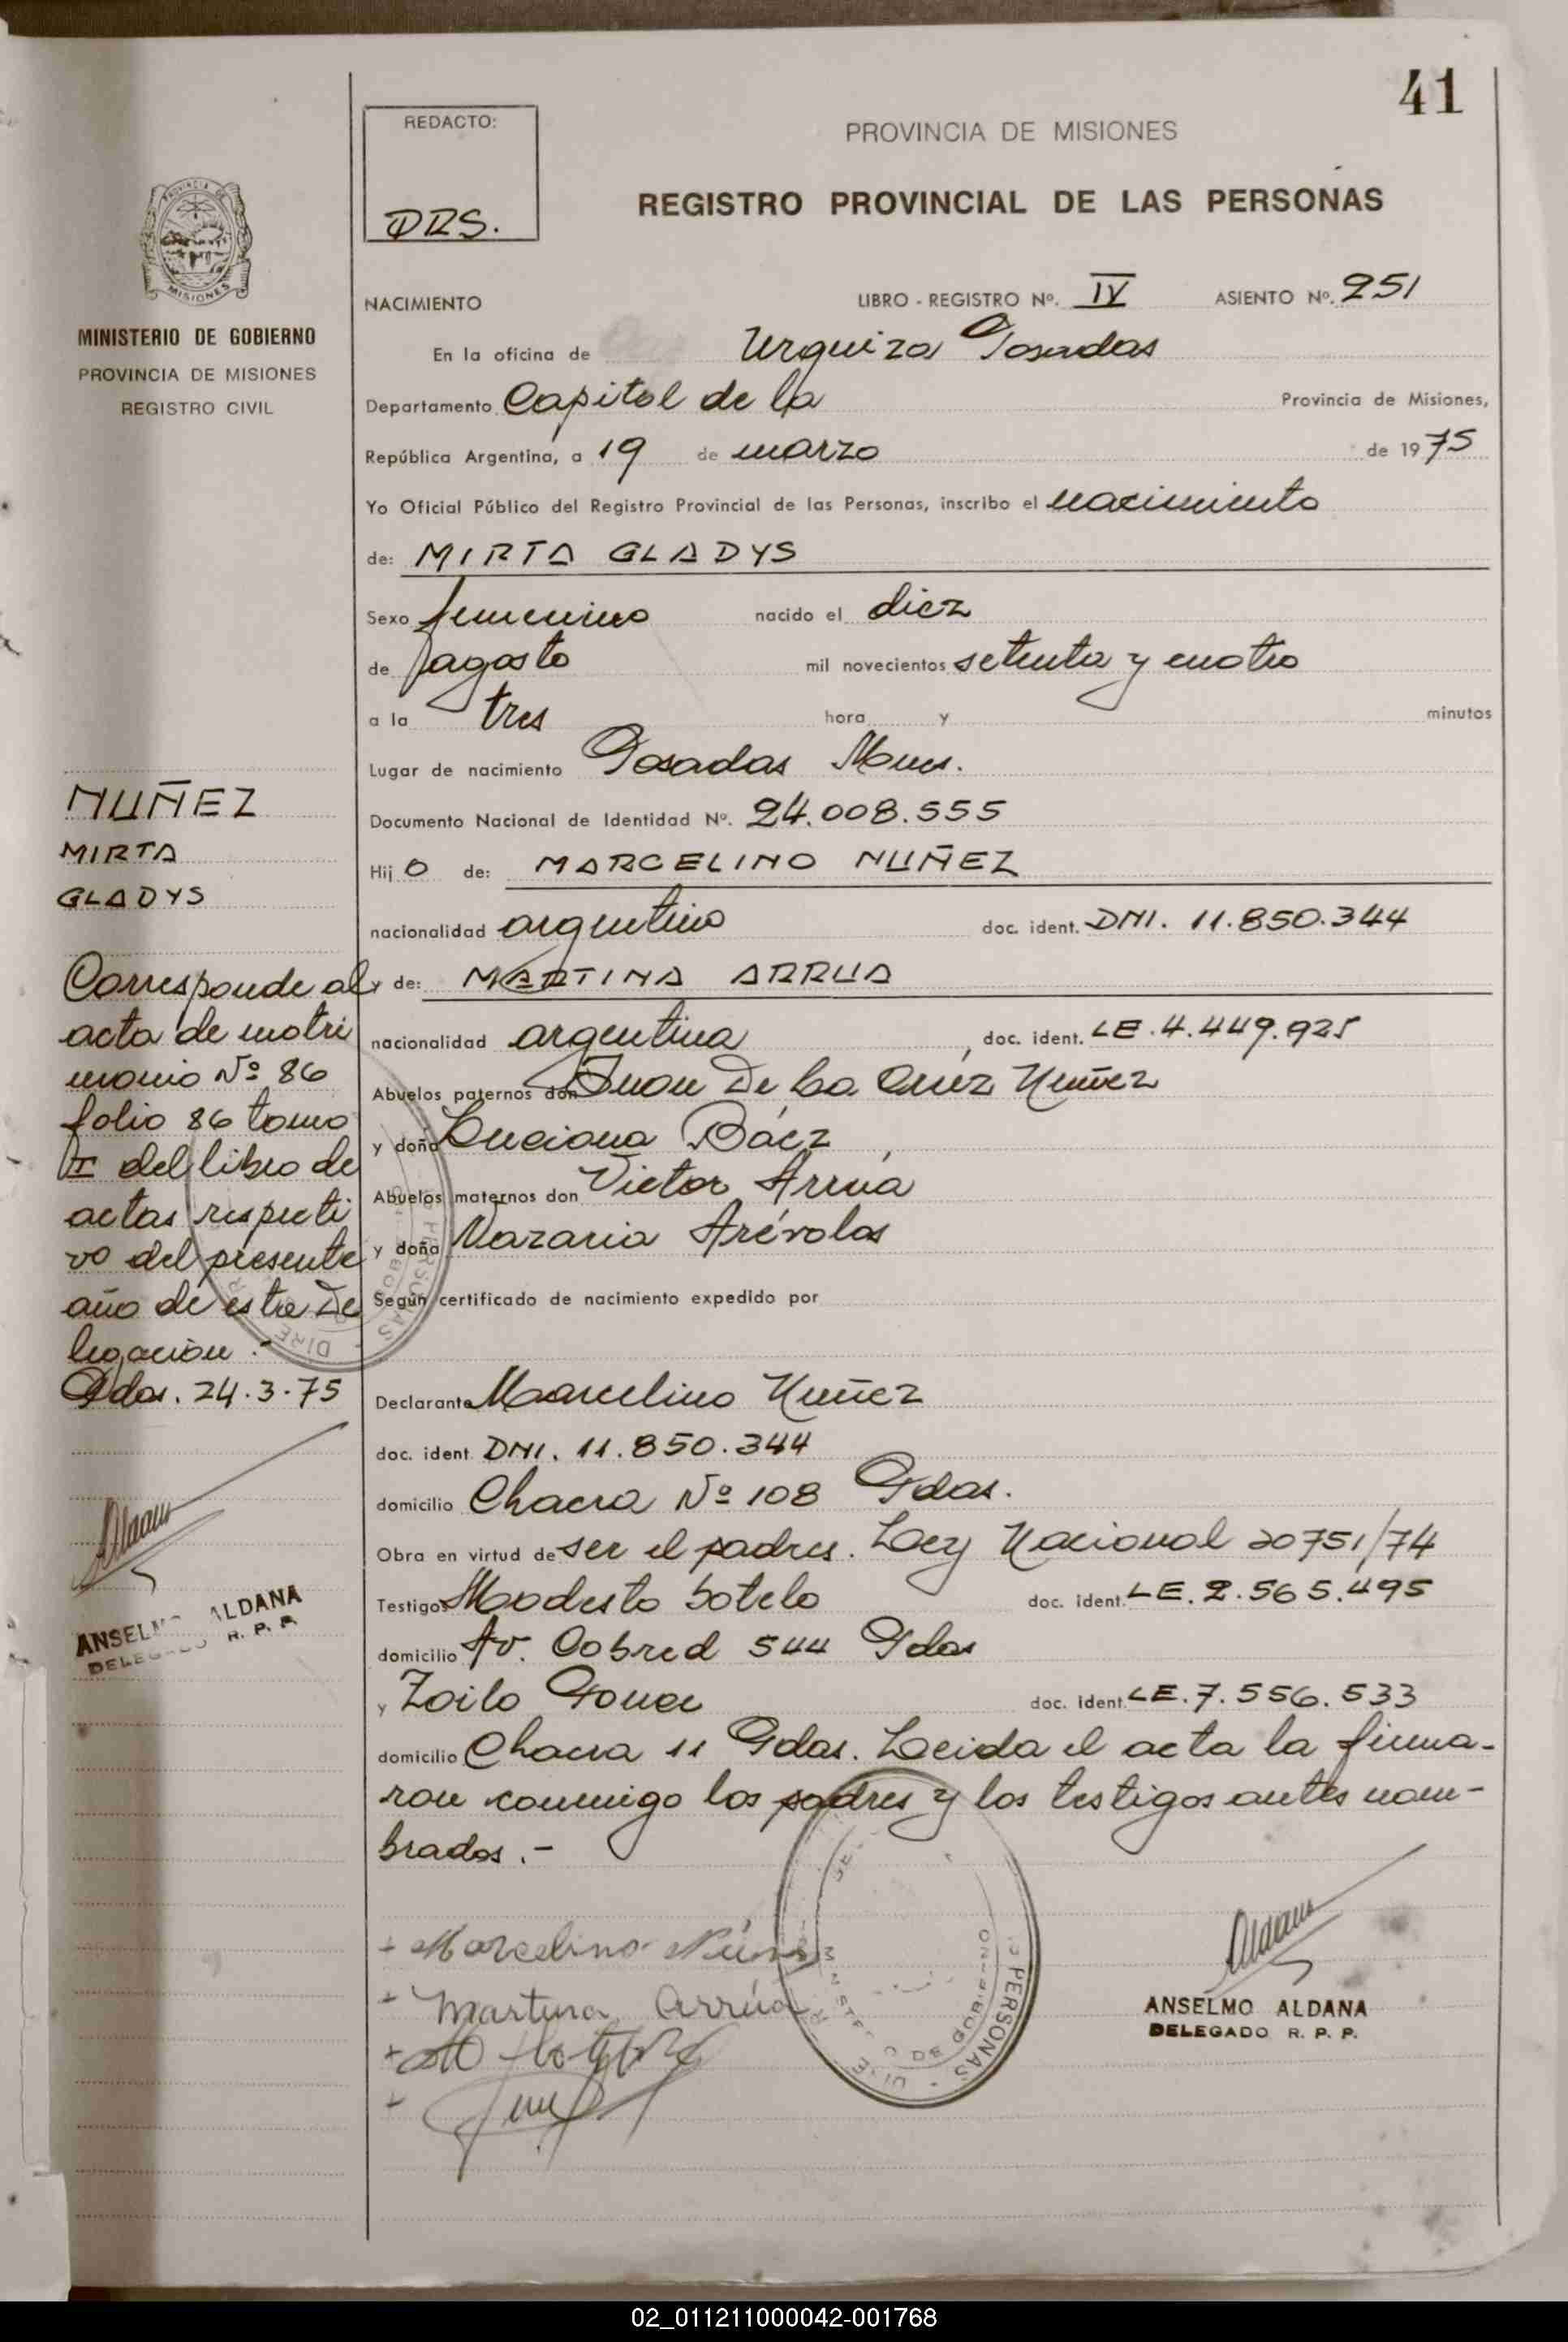 41
REDACTO:
DRS.
PROVINCIA DE MISIONES
REGISTRO PROVINCIAL DE LAS PERSONAS
MISIONES
MINISTERIO DE GOBIERNO
PROVINCIA DE MISIONES
REGISTRO CIVIL
NACIMIENTO LIBRO - REGISTRO Nº. IV ASIENTO Nº. 251
En la oficina de Urquiza Posadas
Departamento Capital de la Provincia de Misiones,
República Argentina, a 19 de marzo de 1975
Yo Oficial Público del Registro Provincial de las Personas, inscribo el nacimiento
de: MIRTA GLADYS
Sexo femenino nacido el diez
de agosto mil novecientos setenta y cuatro
a la tres hora y minutos
Lugar de nacimiento Posadas Mnes.
Documento Nacional de Identidad Nº. 24.008.555
Hij o de: MARCELINO NUÑEZ
nacionalidad argentino doc. ident. DNI. 11.850.344
y de: MARTINA ARRUA
nacionalidad argentina, doc. ident. LE.4.449.925
Abuelos paternos don Juan De La Cruz Nuñez
y doña Luciana Báez,
Abuelos maternos don Victor Arrúa
y doña Nazaria Arévalos
Según certificado de nacimiento expedido por
Declarante Marcelino Nuñez
doc. ident. DNI. 11.850.344
domicilio Chacra Nº 108 Pdas.
Obra en virtud de ser el padres. Ley Nacional 20751/74
Testigos Modesto Sotelo doc. ident. LE.2.565.495
domicilio Av. Cabred 544 Pdas
y Zoilo doc. ident. LE.7.556.533
domicilio Chacra 11 Pdas. Leida el acta la firma-
ron conmigo los padres y los testigos antes nom-
brados.-
NUÑEZ
MIRTA
GLADYS
Corresponde al
acta de matri
monio Nº 86
folio 86 tomo
I del libro de
actas respecti
vo del presente
año de esta De
legación.-
Pdas. 24.3.75
Aldana
ANSELMO ALDANA
DELEGADO R. P. P.
+ Marcelino Núñez
+ Martina Arrúa
+
+
MINISTERIO DE GOBIERNO
PERSONAS - DIRE
Aldana
ANSELMO ALDANA
DELEGADO R. P. P.
02_011211000042-001768